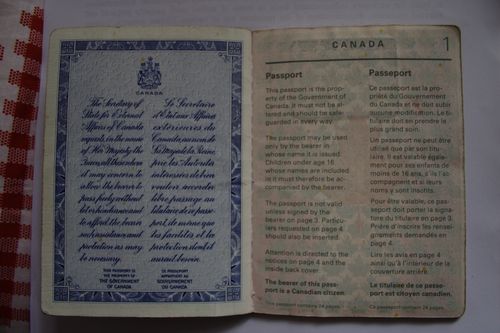 The Secretary of
State for External
Affairs of Canada
requests, in the name
of Her Majesty the
Queen, all those whom
it may concern to
allow the bearer to
pass freely without
let or hindrance and
to afford the bearer
such assistance and
protection as may
be necessary.
THIS PASSPORT IS
THE PROPERTY OF
THE GOVERNMENT
OF CANADA
Le Secrétaire
d'Etat aux Affaires
extérieures du
Canada, au nom de
Sa Majesté la Reine,
prie les Autorités
intéressées de bien
vouloir accorder
libre passage au
titulaire de ce passe-
port, de même que
les facilités et la
protection dont il
aurait besoin.
CE PASSEPORT
APPARTIENT AU
GOUVERNEMENT
DU CANADA
CANADA
1
Passport
This passport is the prop-
erty of the Government of
Canada. It must not be al-
tered and should be safe-
guarded in every way.
The passport may be used
only by the bearer in
whose name it is issued.
Children under age 16
whose names are included
in it must therefore be ac-
companied by the bearer.
The passport is not valid
unless signed by the
bearer on page 3. Particu-
lars requested on page 4
should also be inserted.
Attention is directed to the
notices on page 4 and the
inside back cover.
The bearer of this pass-
port is a Canadian citizen.
This passport contains 24 pages.
Passeport
Ce passeport est la pro-
priété du Gouvernement
du Canada et ne doit subir
aucune modification. Le ti-
tulaire doit en prendre le
plus grand soin.
Un passeport ne peut être
utilisé que par son titu-
laire. Il est valable égale-
ment pour ses enfants de
moins de 16 ans, s'ils l'ac-
compagnent et si leurs
noms y sont inscrits.
Pour être valable, ce pas-
seport doit porter la signa-
ture du titulaire à page 3.
Prière d'inscrire les rensei-
gnements demandés en
page 4.
Lire les avis en page 4
ainsi qu'à l'intérieur de la
couverture arrière.
Le titulaire de ce passe-
port est citoyen canadien.
Ce passeport contient 24 pages.